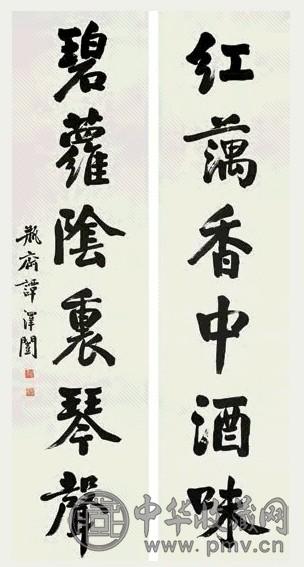 红藕香中酒味
碧蘿陰裏琴聲
瓶齋譚澤闓
中华收藏网
www.pmv.cn